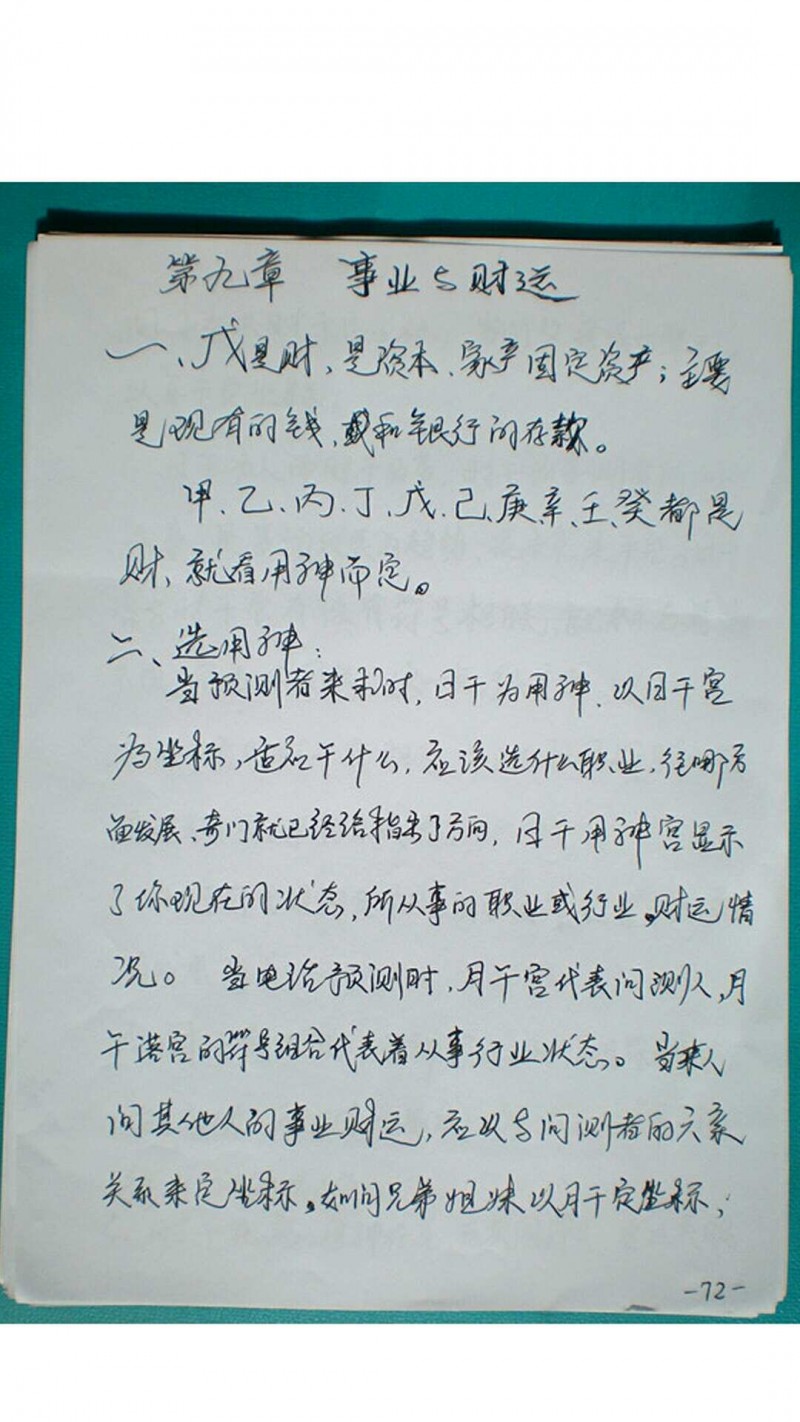 第九章 事业与财运
一、戊是财，是资本、家产固定资产；主要
是现有的钱，或和银行的存款。
甲、乙、丙、丁、戊、己、庚、辛、壬、癸都是
财，就看用神而定。
二、选用神：
当预测者来和时，日干为用神，以日干宫
为坐标，适和干什么，应该选什么职业，往哪方
面发展，奇门就已经给指出了方向，日干用神宫显示
了你现在的状态，所从事的职业或行业。财运情
况。 当电话预测时，月干宫代表问测人，月
干落宫的符号组合代表着从事行业状态。当来人
问其他人的事业财运，应以与问测者的六亲
关系来定坐标。如问兄弟姐妹以月干定坐标；
-72-